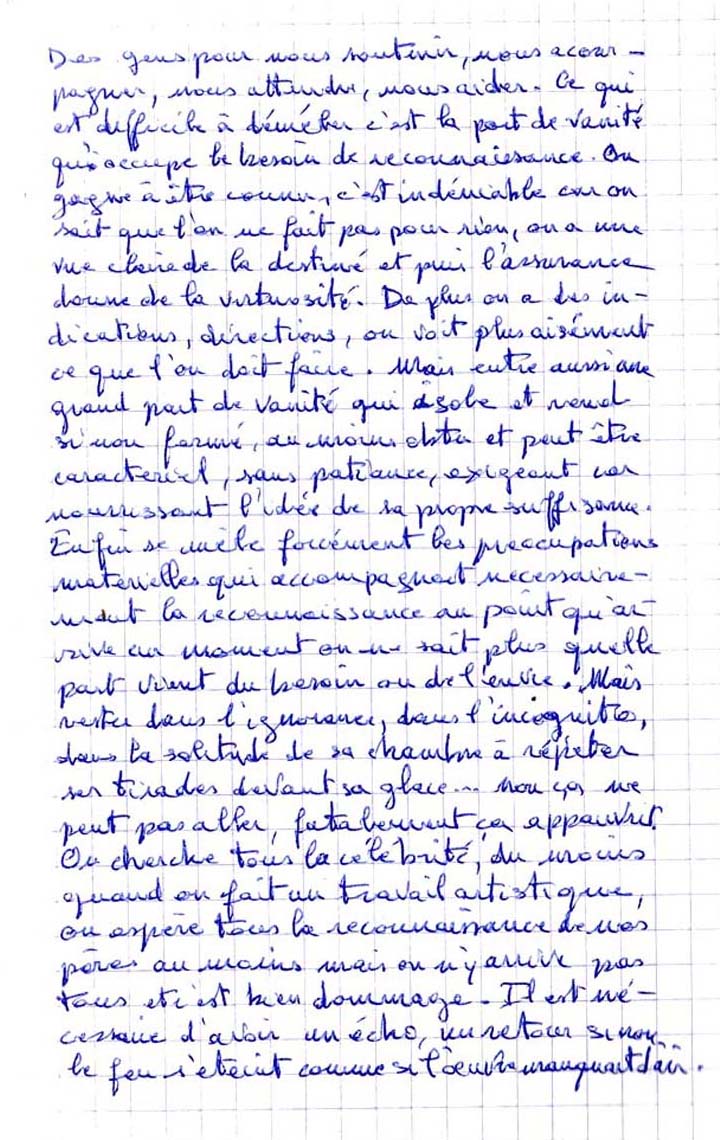 Des gens pour nous soutenir, nous accom-
pagner, nous attendre, nous aider. Ce qui
est difficile à démêler c'est la part de vanité
qu'occupe le besoin de reconnaissance. On
gagne à être connu, c'est indéniable car on
sait que l'on ne fait pas pour rien, on a une
vue claire de la destinée et puis l'assurance
donne de la virtuosité. De plus on a des in-
dications, directions, on voit plus aisément
ce que l'on doit faire. Mais entre aussi une
grand part de vanité qui isole et rend
si non fermé, au moins obtu et peut être
caractériel, sans patience, exigeant car
nourrissant l'idée de sa propre suffisance.
Enfin se mêle forcément les préoccupations
materielles qui accompagnent nécessaire-
ment la reconnaissance au point qu'ar-
rive un moment on ne sait plus quelle
part vient du besoin ou de l'envie. Mais
rester dans l'ignorance, dans l'incognito,
dans la solitude de sa chambre à répéter
ses tirades devant sa glace... non ça ne
peut pas aller, fatalement ça appauvrit.
On cherche tous la célébrité, du moins
quand on fait un travail artistique,
on espère tous la reconnaissance de nos
pères au moins mais on n'y arrive pas
tous et c'est bien dommage. Il est né-
cessaire d'avoir un écho, un retour si non
le feu s'éteint comme si l'oeuvre manquait d'air.